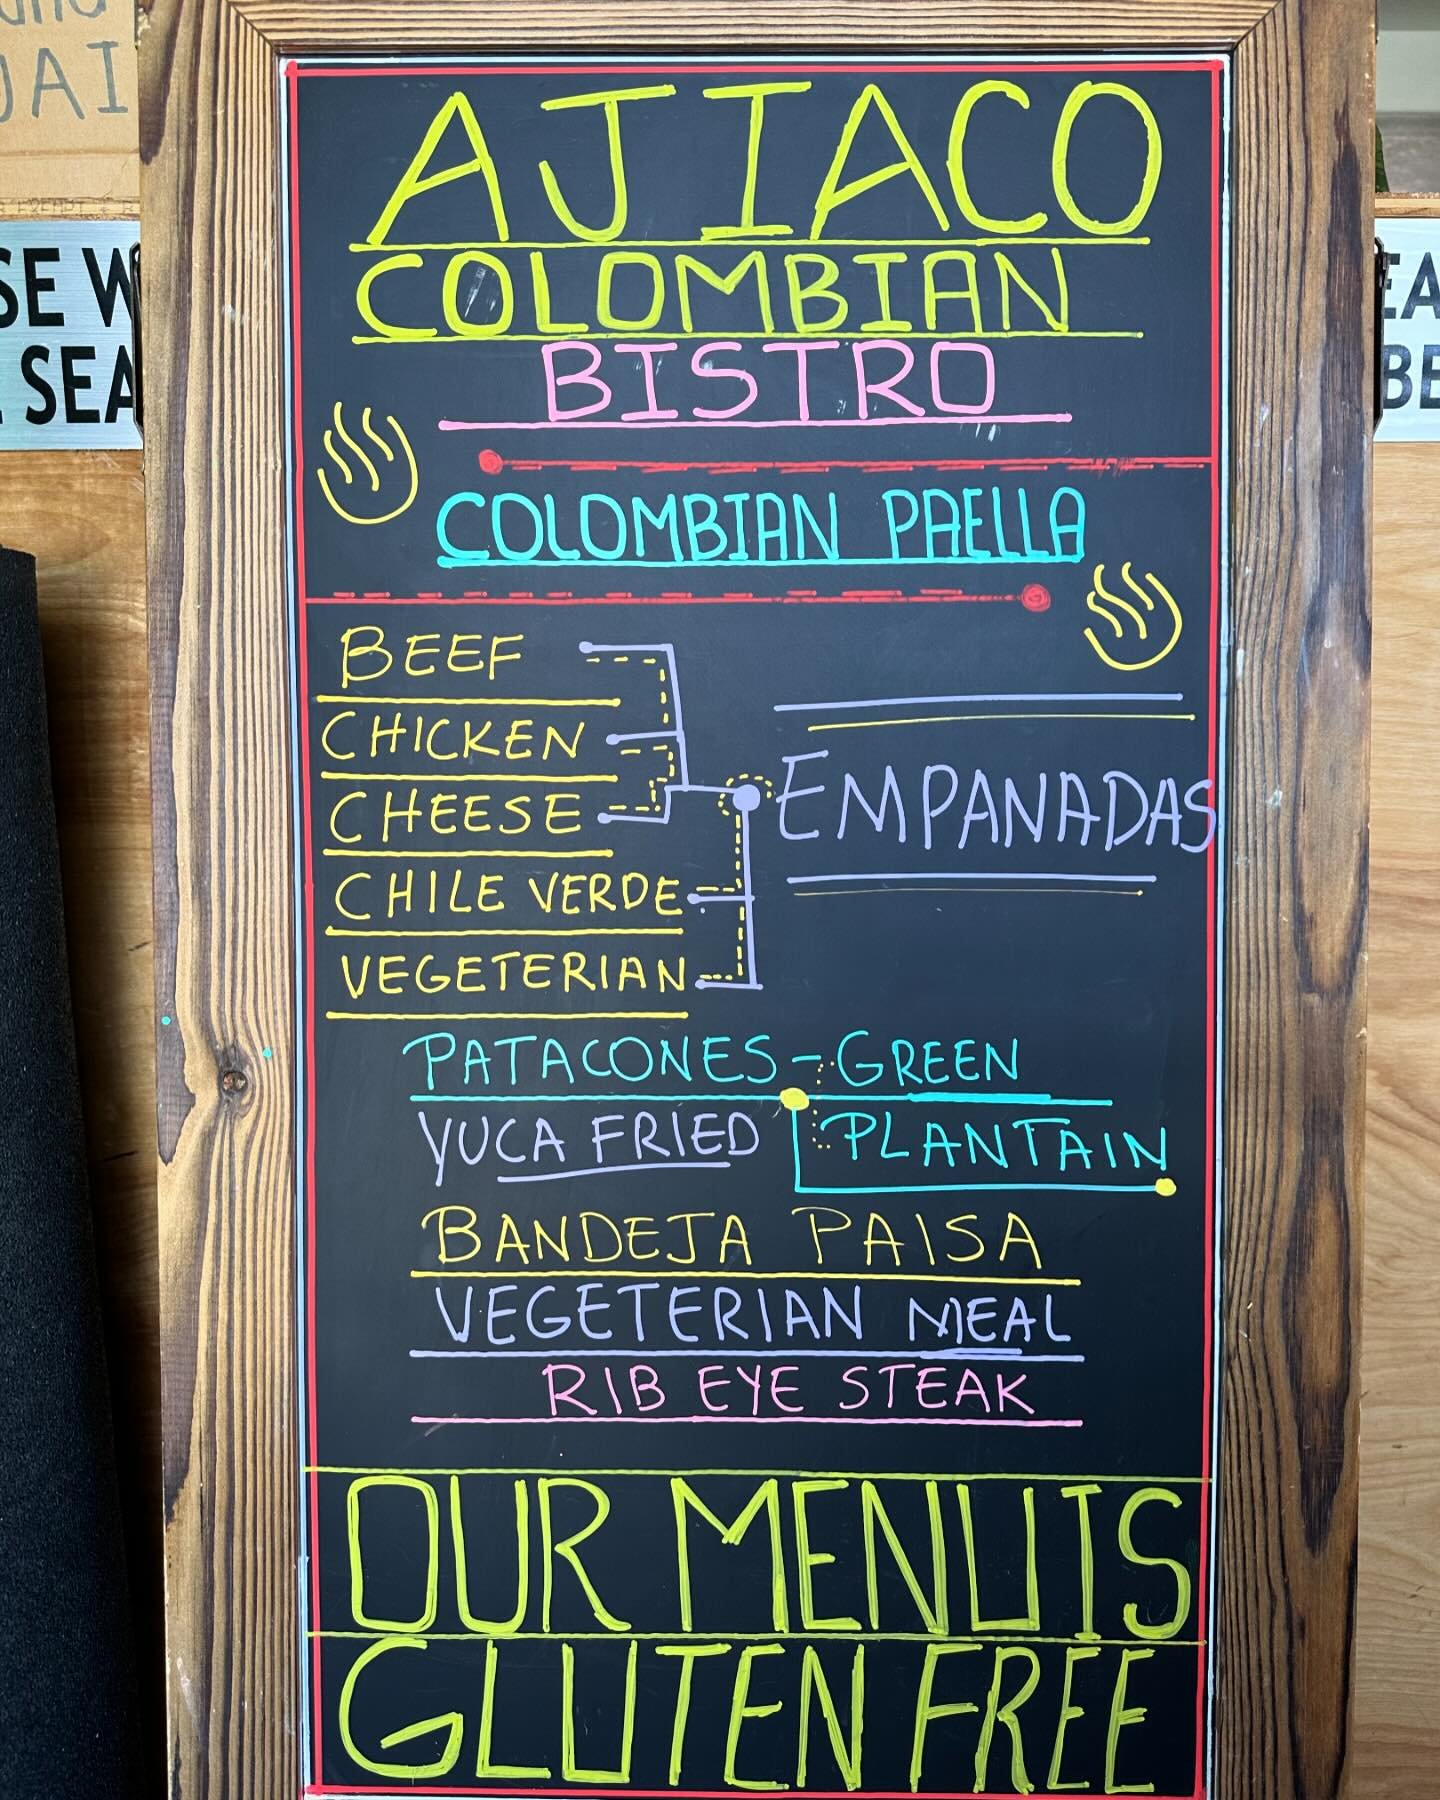 JAI
SE W
SEA
EA
BE
AJIACO
COLOMBIAN
BISTRO
COLOMBIAN PAELLA
BEEF
CHICKEN
CHEESE
CHILE VERDE
VEGETERIAN
EMPANADAS
PATACONES - GREEN
PLANTAIN
YUCA FRIED
BANDEJA PAISA
VEGETERIAN MEAL
RIB EYE STEAK
OUR MENU IS
GLUTEN FREE